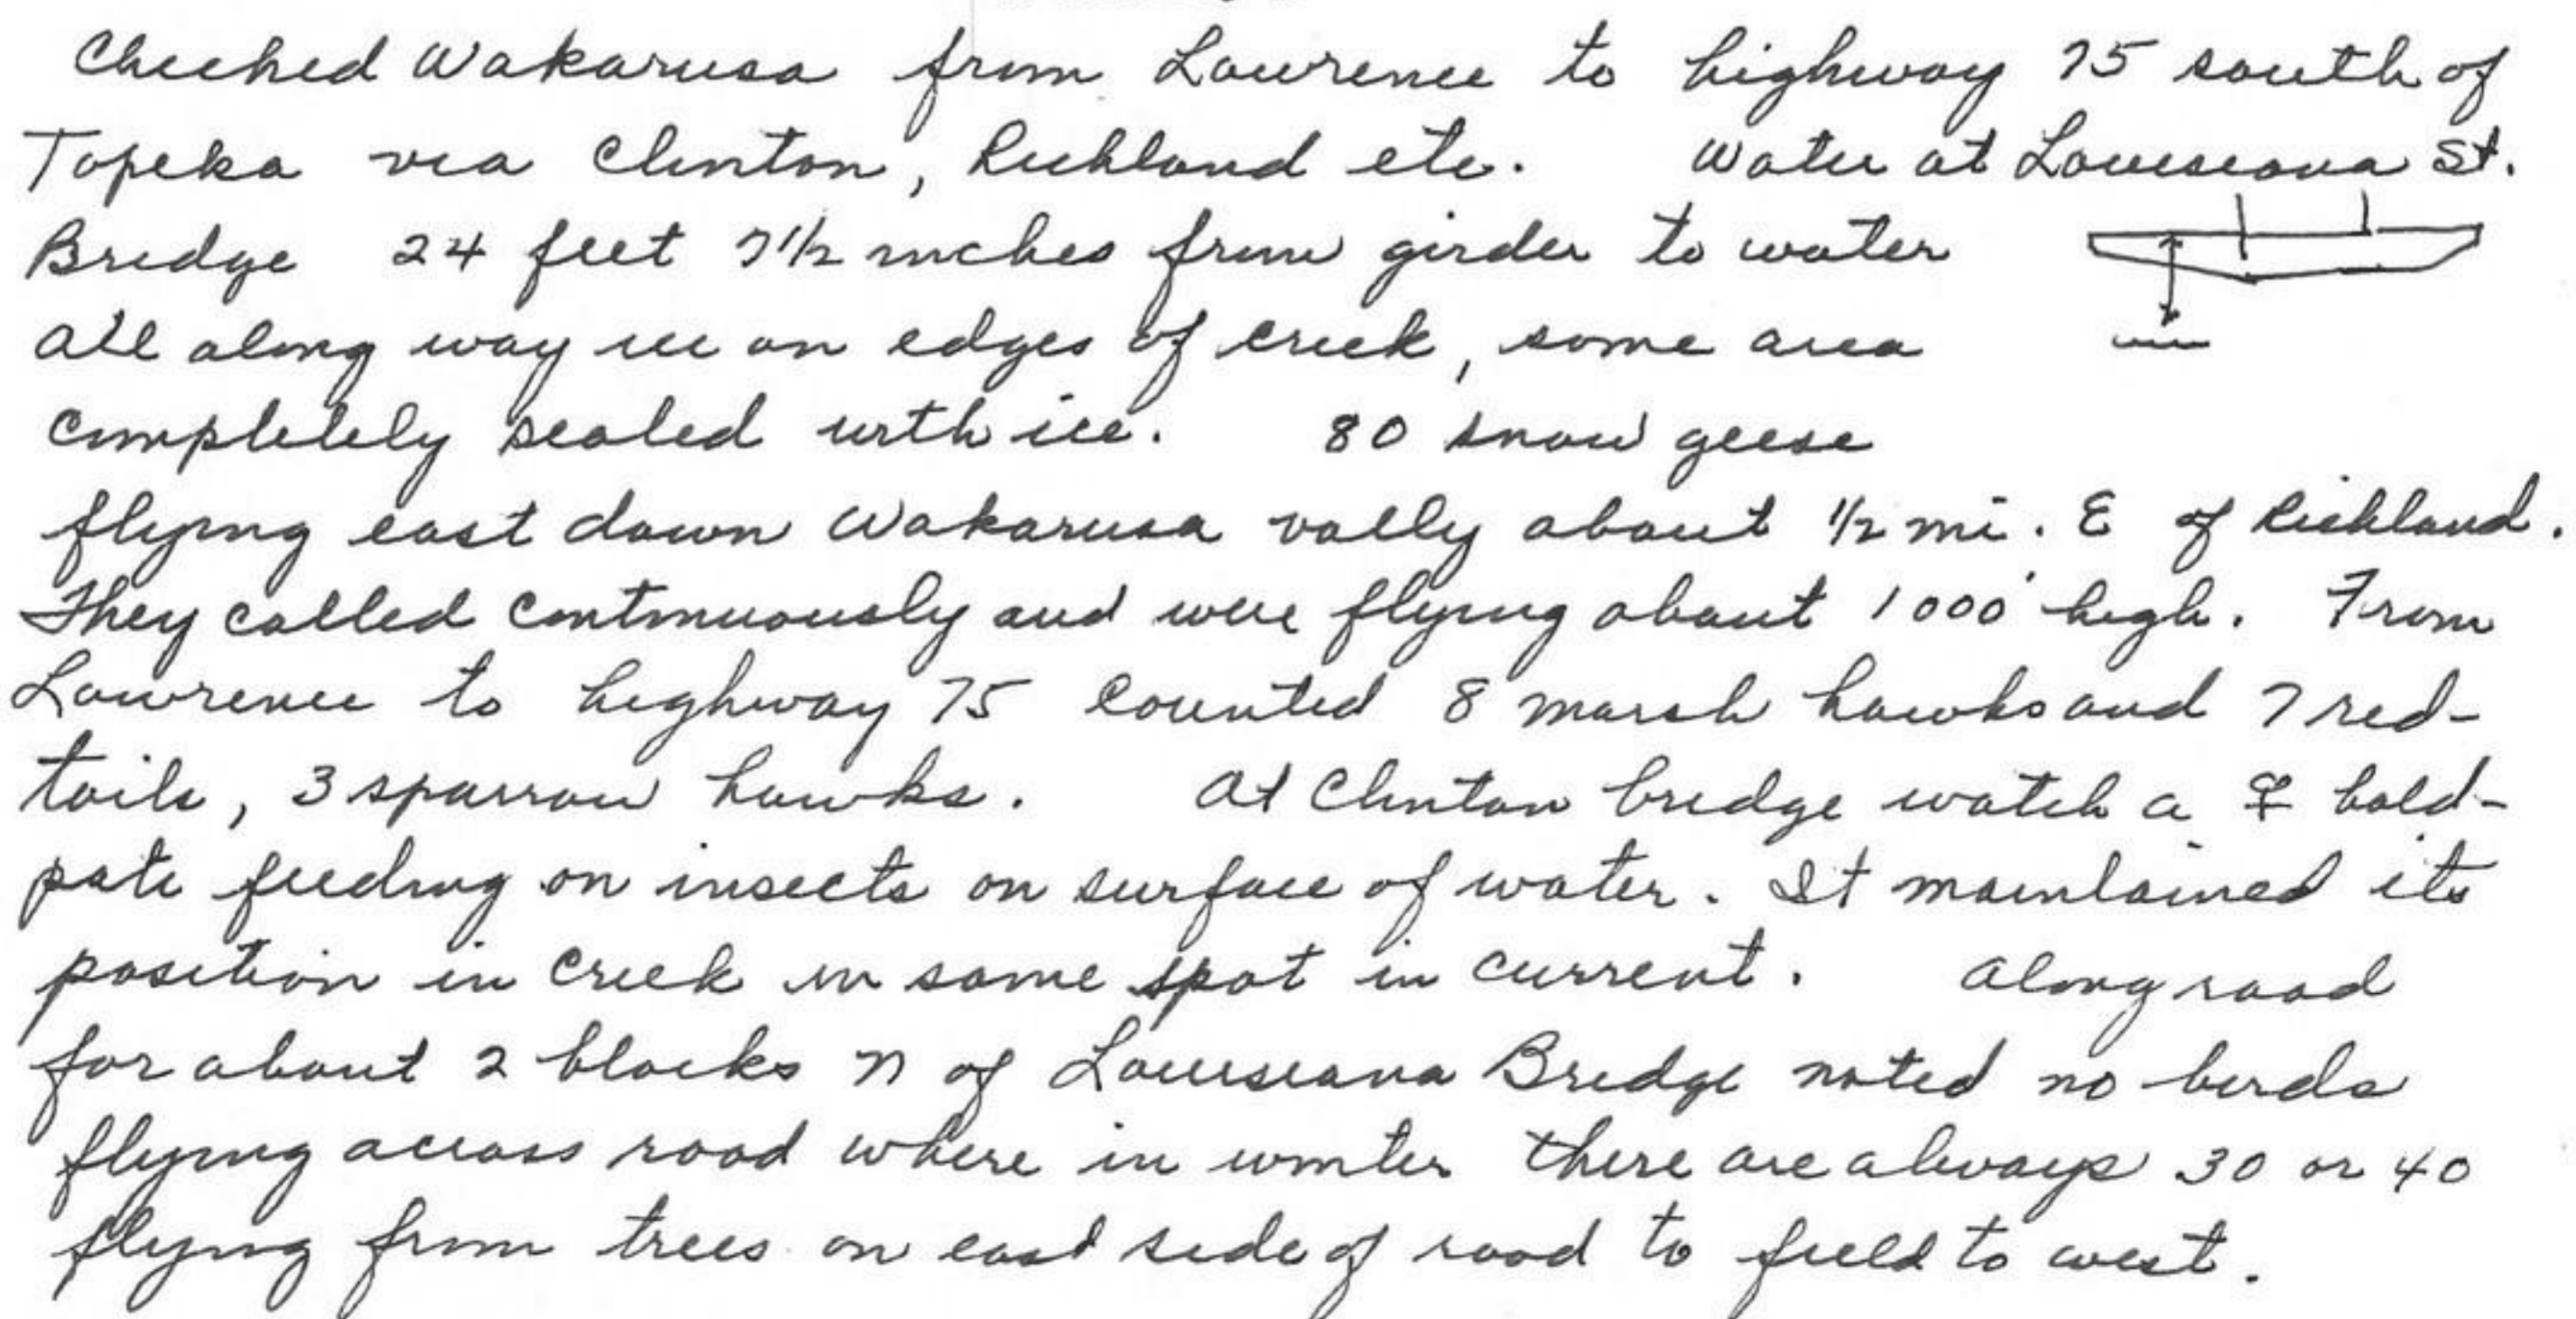 Checked Wakarusa from Lawrence to highway 75 south of
Topeka via Clinton, Richland etc. Water at Louisiana St.
Bridge 24 feet 7 1/2 inches from girder to water
All along way ice on edges of creek, some area
completely sealed with ice. 80 snow geese
flying east down Wakarusa vally about 1/2 mi. E of Richland.
They called continuously and were flying about 1000' high. From
Lawrence to highway 75 counted 8 marsh hawks and 7 red-
tails, 3 sparrow hawks. At Clinton bridge watch a ♀ bald-
pate feeding on insects on surface of water. It maintained its
position in creek in same spot in current. Along road
for about 2 blocks N of Louisiana Bridge noted no birds
flying across road where in winter there are always 30 or 40
flying from trees on east side of road to field to west.